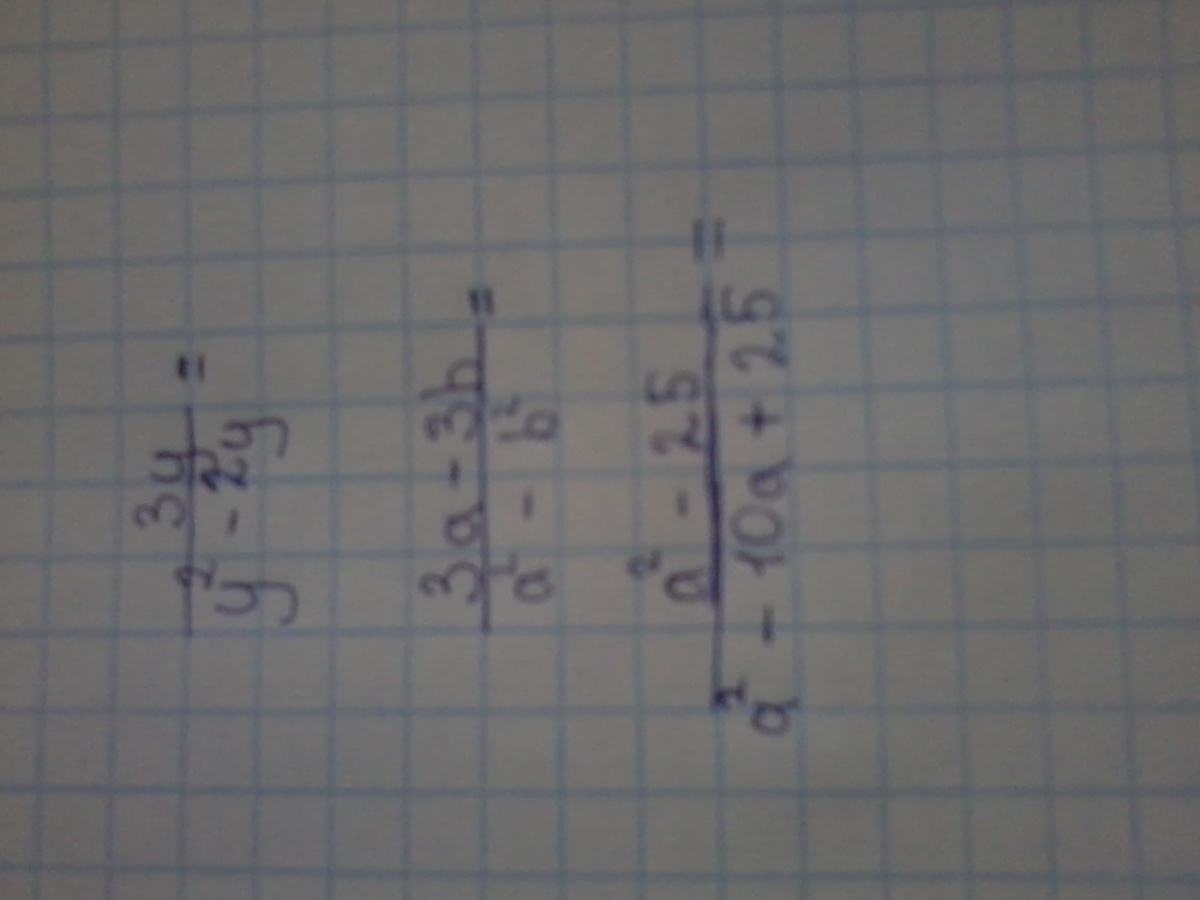 3y
y² - 2y =
3a - 3b
a² - b² =
a² - 25
a² - 10a + 25 =